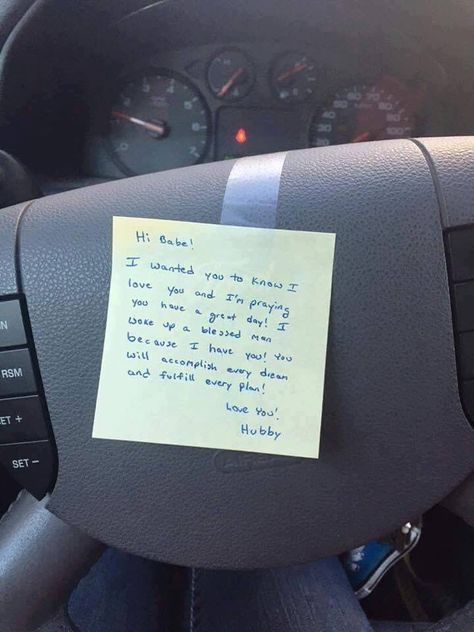 Hi Babe!
I wanted you to know I
love you and I'm praying
you have a great day! I
woke up a blessed man
because I have you! You
will accomplish every dream
and fulfill every plan!
Love You!
Hubby
RSM
SET -